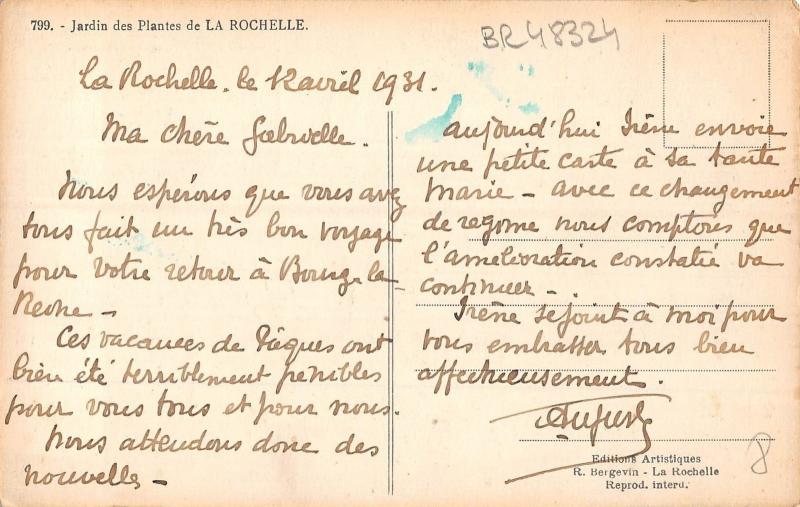 799. - Jardin des Plantes de LA ROCHELLE.
BR48324
La Rochelle. le 12 avril 1931.
Ma chère Gabrielle.
Nous espérons que vous avez
tous fait un très bon voyage
pour votre retour à Bourg-la-
Reine -
Ces vacances de Pâques ont
bien été terriblement pénibles
pour vous tous et pour nous.
Nous attendons donc des
nouvelles -
aujourd'hui Irène envoie
une petite carte à sa tante
Marie - avec ce changement
de regime nous comptons que
l'amelioration constatée va
continuer -
Irène se joint à moi pour
vous embrasser tous bien
affectueusement.
Editions Artistiques
R. Bergevin - La Rochelle
Reprod. interd.
8